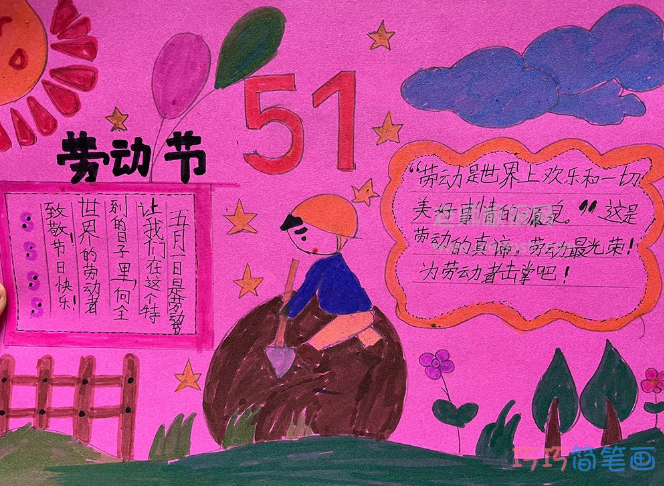 51
劳动节
五月一日是劳动
让我们在这个特
别的日子里,向全
世界的劳动者
致敬!节日快乐!
“劳动是世界上欢乐和一切
美好事情的源泉。”这是
劳动的真谛,劳动最光荣!
为劳动者击掌吧!
巧巧简笔画